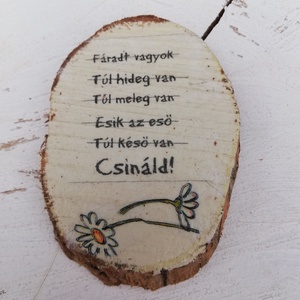 Fáradt vagyok
Túl hideg van
Túl meleg van
Esik az eső
Túl késő van
Csináld!